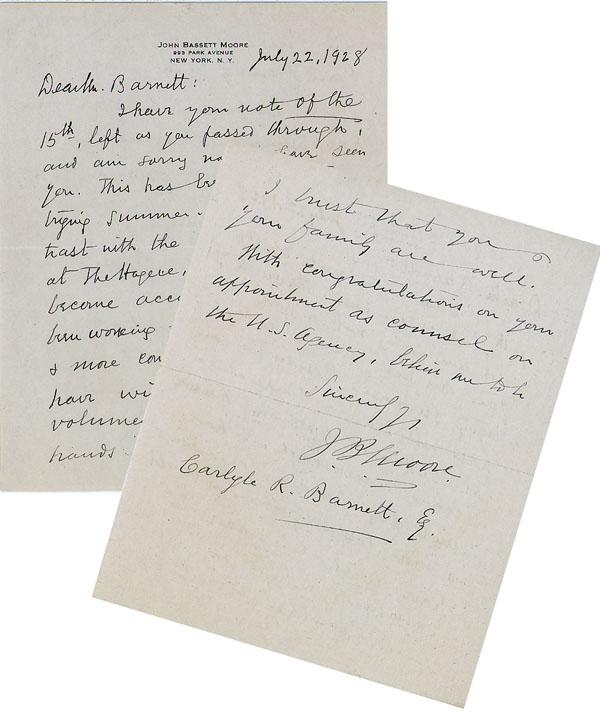 JOHN BASSETT MOORE
993 PARK AVENUE
NEW YORK, N. Y.
July 22, 1928
Dear Mr. Barnett:
I have your note of the
15th, left as you passed through,
and am sorry no have seen
you. This has be
trying summer.
trast with the
at The Hague,
become acc
been working
& more con
have wi
volume
hands
I trust that you &
your family are well.
With congratulations on your
appointment as counsel on
the U.S. Agency, believe me to be
Sincerely
J. B. Moore.
Carlyle R. Barnett, Esq.